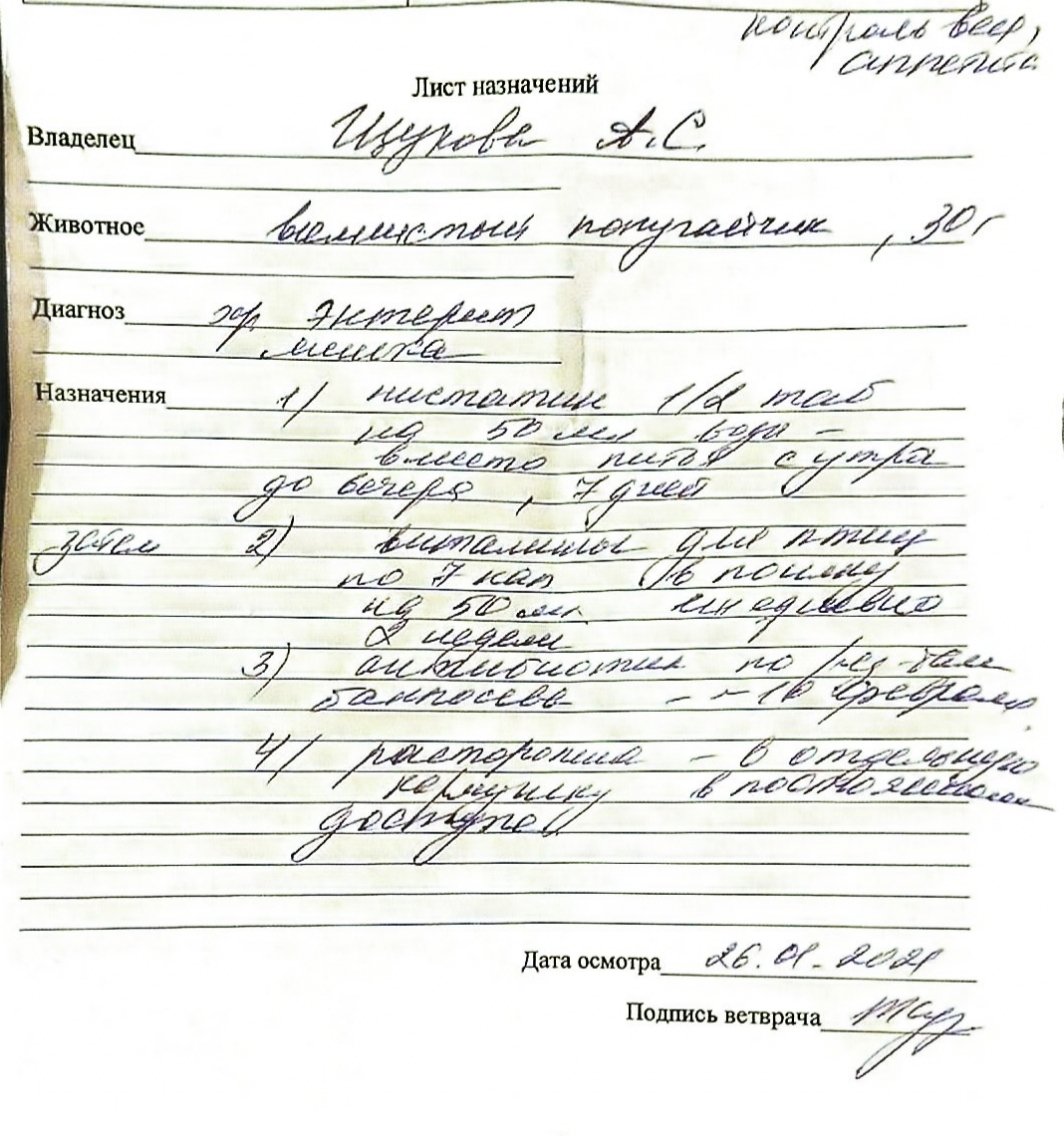 контроль веса,
аппетита
Лист назначений
Владелец Щукова А.С.
Животное волнистый попугайчик, 30г
Диагноз хр энтерит
Назначения 1) нистатин 1/2 таб
на 50 мл воды -
вместо питья с утра
до вечера, 7 дней
затем 2) витамины для птиц
по 7 кап в поилку
на 50 мл ежедневно
2 недели
3) антибиотик по рез-там
бакпосева - ~ 10 февраля
4) расторопша - в отдельную
кормушку в постоянном
доступе
Дата осмотра 26.01.2021
Подпись ветврача